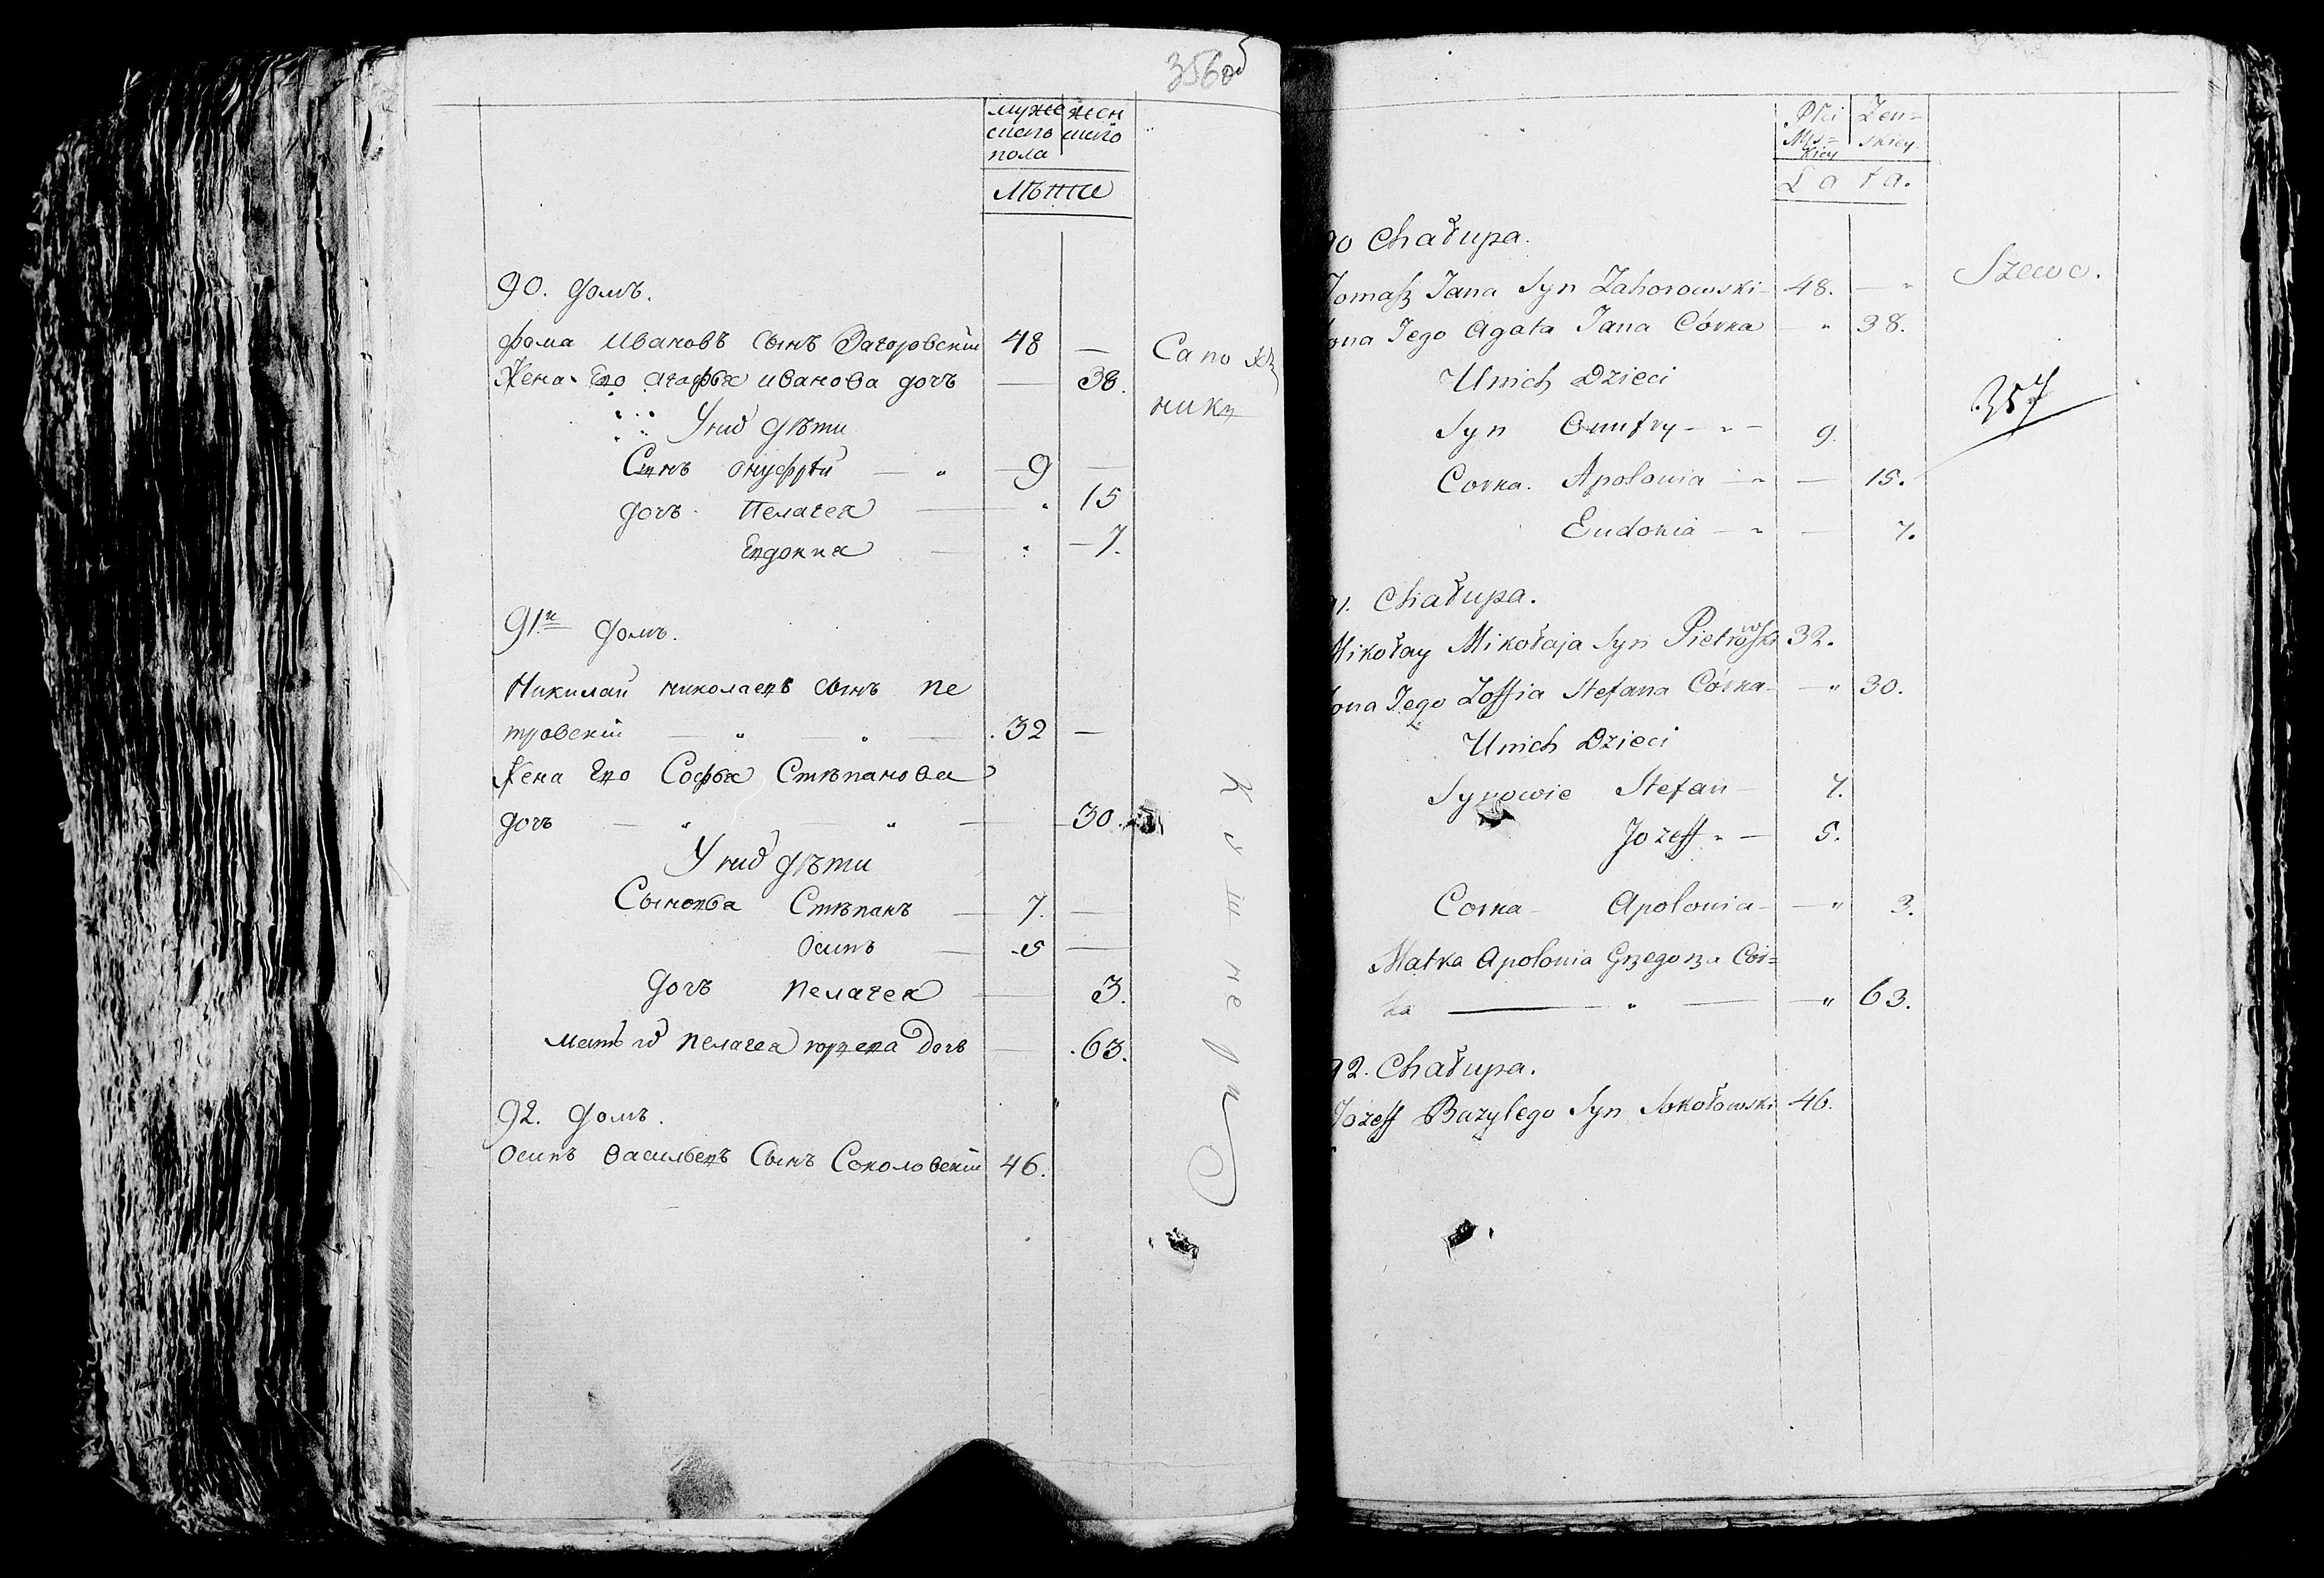 356об
муже жен
скаго скаго
пола
Лѣта
90. домъ.
Фома Ивановъ Сынъ Загоровскій 48 —
Жена Его Агафья Иванова дочь — 38.
Сапож
никъ
У них дѣти
Сынъ Онуфрій — " — 9 —
дочь Пелагея — " 15
Евдокиа — " — 7.
91й домъ.
Николай николаевъ сынъ Пе
тровскій — " — " — 32 —
Жена Его Софья Стѣпанова
дочь — " — " — 30.
У них дѣти
Сыновья Стѣпанъ — 7. —
Осипъ — 5 —
Дочь Пелагея — 3.
мать их Пелагея дочь — 63.
Кушнер
92. домъ.
Осипъ васильевъ Сынъ Соколовскій 46.
Płci Żen=
Męs= skiey
kiey
Lata.
90 Chałupa.
Tomasz Jana Syn Zahorowski 48. — "
Szewc.
ona Jego Agata Jana Córka — " 38.
Unich Dzieci
357
Syn Onufry — " — 9.
Corka. Apolonia — " — 15.
Eudokia — " — 7.
91. Chałupa.
Mikołay Mikołaja Syn Pietrowski 32.
ona Jego Zoffia Stefana Córka — " 30.
Unich Dzieci
Synowie Stefan — 7.
Jozeff " — 5.
Corka — Apolonia — " 3.
Matka Apolonia Grzegorza Cór=
ka — " — " 63.
92. Chałupa.
Jozeff Bazylego Syn Sokołowski 46.